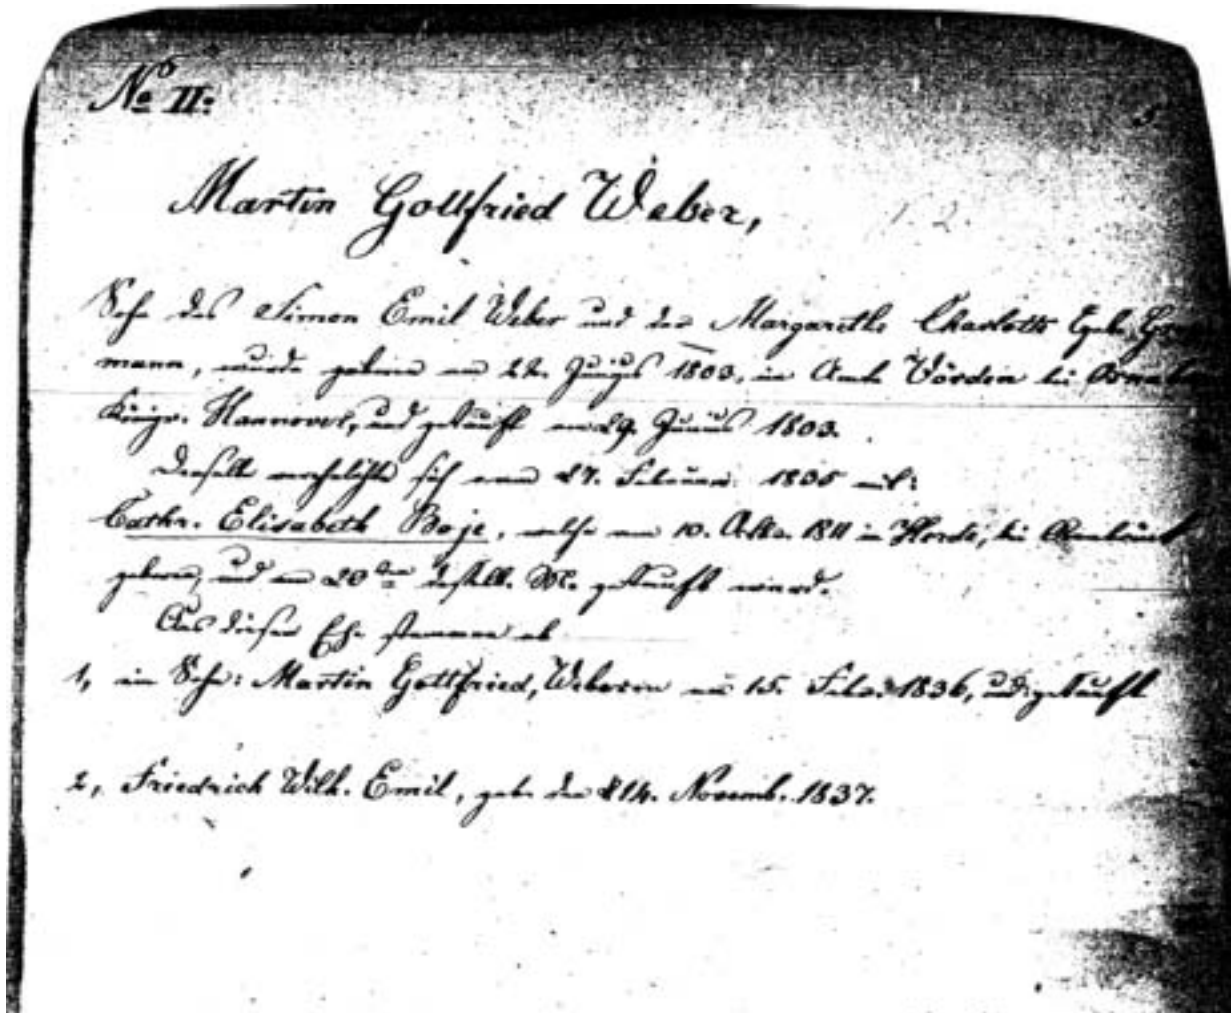 No II.
5.
Martin Gottfried Weber,
Sohn des Simon Emil Weber und der Margarethe Charlotte geb.
mann, wurde geboren am Junius 1803, im Amte Vörden bei
Königr. Hannover, und getauft am 29. Junius 1803.
Derselbe verehelichte sich am 27. Februar 1835 mit:
Cathr. Elisabeth Boje, welche am 10. Octbr. 1811 in bei
geboren, und am 20ten desselb. M. getauft ward.
Aus dieser Ehe stammen ab
1, ein Sohn: Martin Gottfried, geboren am 15. Febr. 1836, und getauft
2, Friedrich Wilh. Emil, geb. den 14. Novemb. 1837.